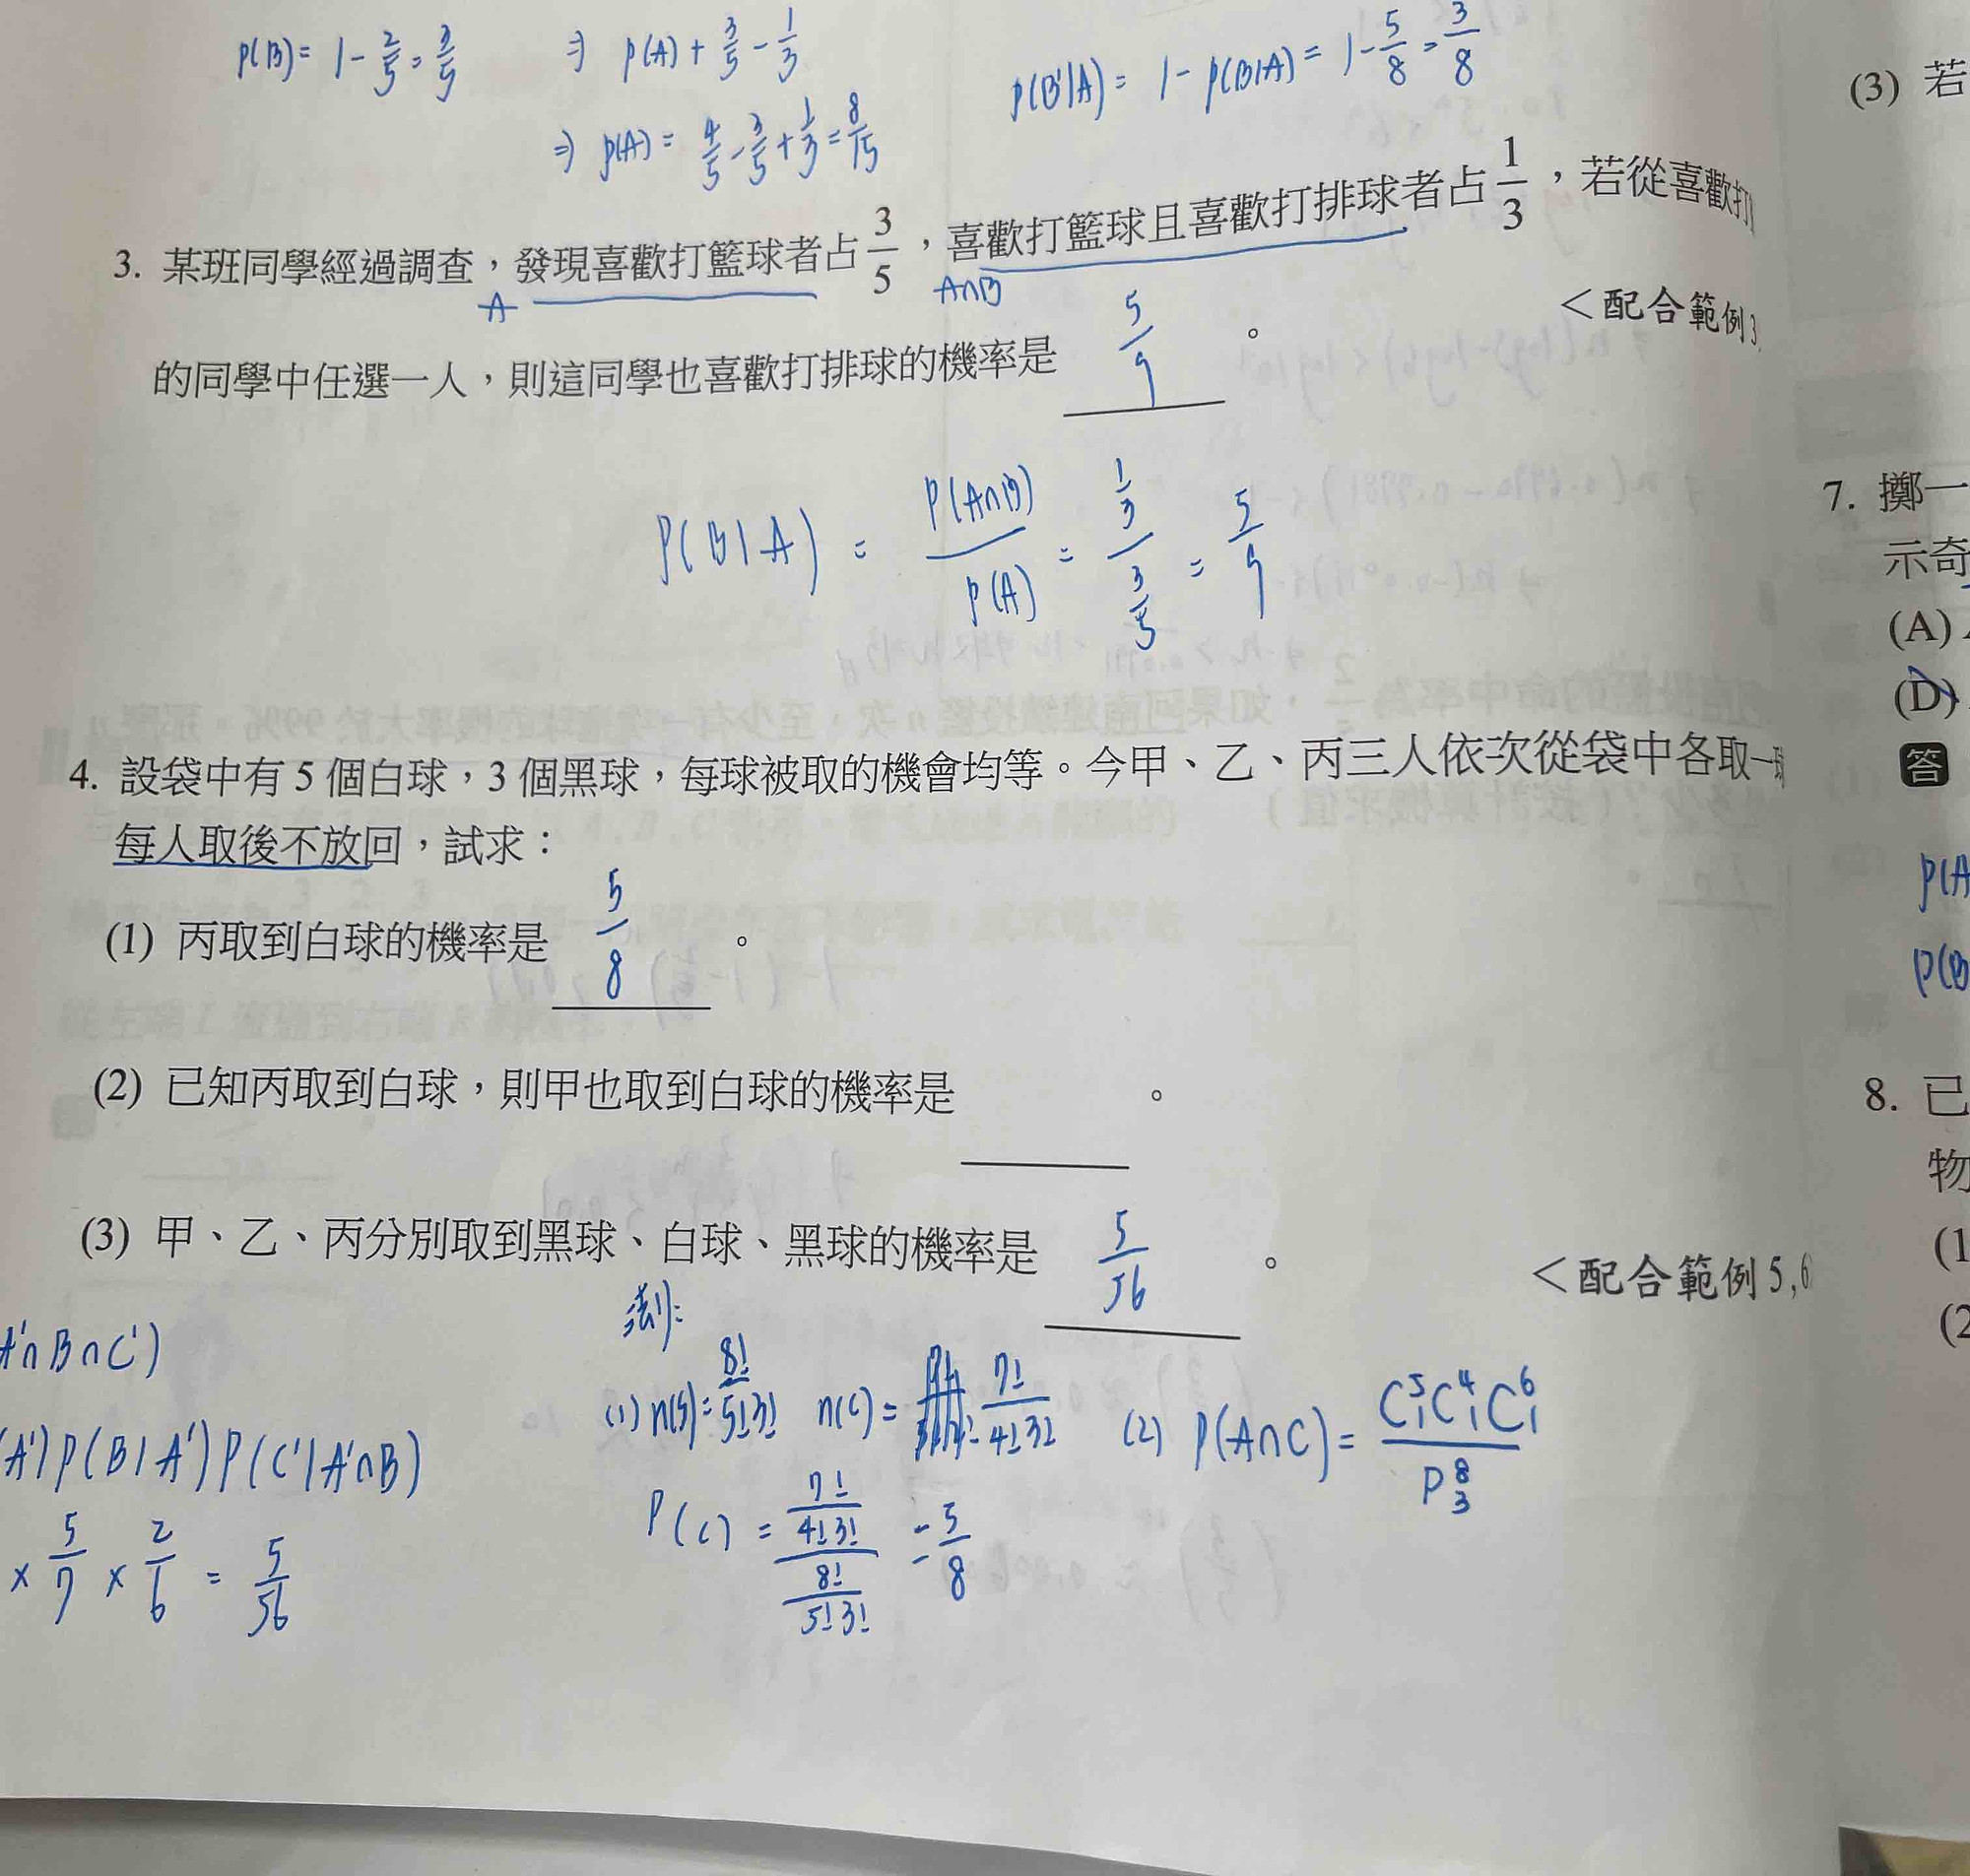 P(B) = 1 - 2/5 = 3/5
⇒ P(A) + 3/5 - 1/3
⇒ P(A) = 4/5 - 3/5 + 1/3 = 8/15
P(B'|A) = 1 - P(B|A) = 1 - 5/8 = 3/8
3. 某班同學經過調查，發現喜歡打籃球者占 3/5 ，喜歡打籃球且喜歡打排球者占 1/3 ，若從喜歡打
A A∩B
的同學中任選一人，則這同學也喜歡打排球的機率是 5/9 。 <配合範例3
P(B|A) = P(A∩B)/P(A) = (1/3)/(3/5) = 5/9
4. 設袋中有 5 個白球，3 個黑球，每球被取的機會均等。今甲、乙、丙三人依次從袋中各取一球
每人取後不放回，試求：
(1) 丙取到白球的機率是 5/8 。
(2) 已知丙取到白球，則甲也取到白球的機率是 。
(3) 甲、乙、丙分別取到黑球、白球、黑球的機率是 5/56 。 <配合範例 5,6
A'∩B∩C')
(A')P(B|A')P(C'|A'∩B)
× 5/7 × 2/6 = 5/56
(1) n(S) = 8!/5!3! n(C) = 7!/4!3!
P(C) = (7!/4!3!)/(8!/5!3!) = 5/8
(2) P(A∩C) = C⁵₁C⁴₁C⁶₁/P⁸₃
(3) 若
7. 擲一
示奇
(A)
(D)
答
P(A
P(B
8. 已
物
(1
(2